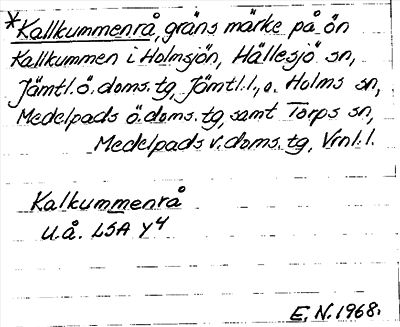 *Kallkummenrå, gräns märke på ön
Kallkummen i Holmsjön, Hällesjö sn,
Jämtl.ö.doms.tg, Jämtl.l., o. Holms sn,
Medelpads ö.doms.tg, samt Torps sn,
Medelpads v.doms.tg, Vrnl.l.
Kalkummenrå
U.å. LSA Y4
E.N.1968.